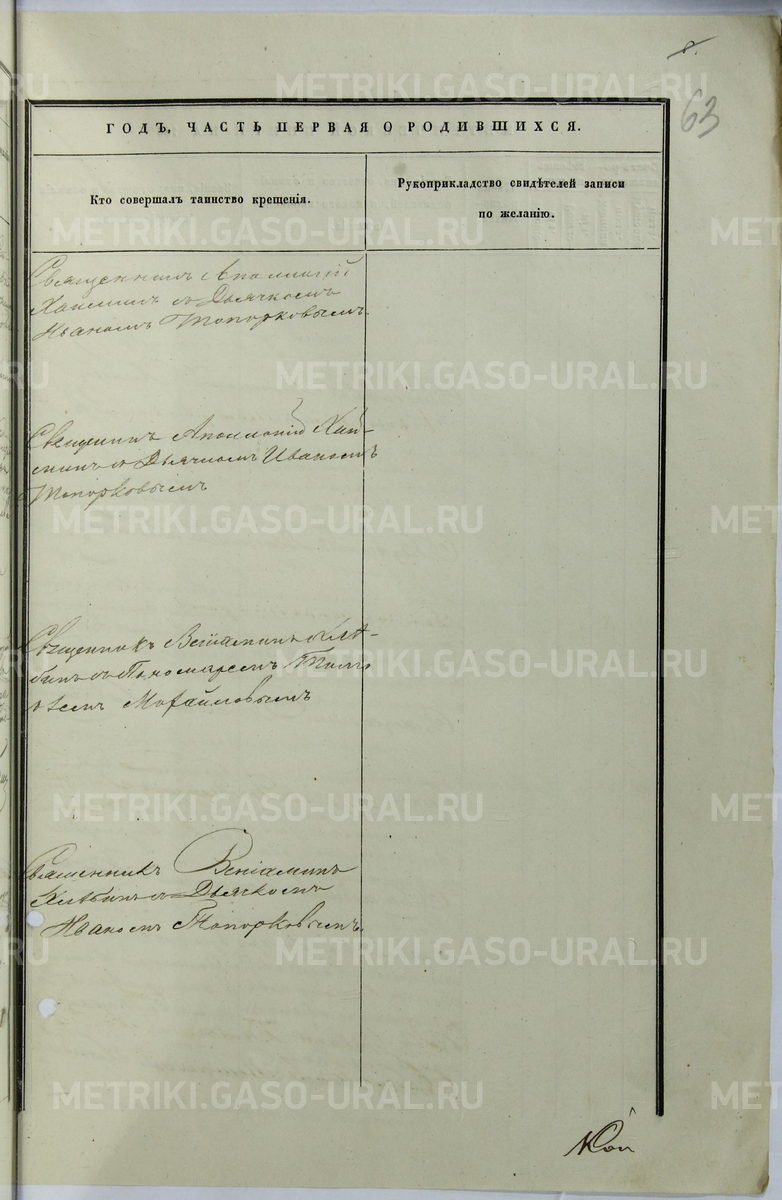 8.
63
METRIKI.GASO-URAL.RU
ГОДЪ, ЧАСТЬ ПЕРВАЯ О РОДИВШИХСЯ.
Кто совершалъ таинство крещенія.
Рукоприкладство свидѣтелей записи
по желанію.
METRIKI.GASO-URAL.RU
Священникъ Аполлоній
съ Дьячкомъ
Иваномъ Топорковымъ.
METRIKI.GASO-URAL.RU
Священникъ Аполлоній
съ Дьячкомъ Иваномъ
Топорковымъ
METRIKI.GASO-URAL.RU
Священникъ Веніаминъ Хлѣ-
бинъ съ Пономаремъ Тимо
ѳеемъ Михайловымъ
METRIKI.GASO-URAL.RU
METRIKI.GASO-URAL.RU
Священникъ Веніаминъ
Хлѣбинъ съ Дьячкомъ
Иваномъ Топорковымъ.
METRIKI.GASO-URAL.RU
METRIKI.GASO-URAL.RU